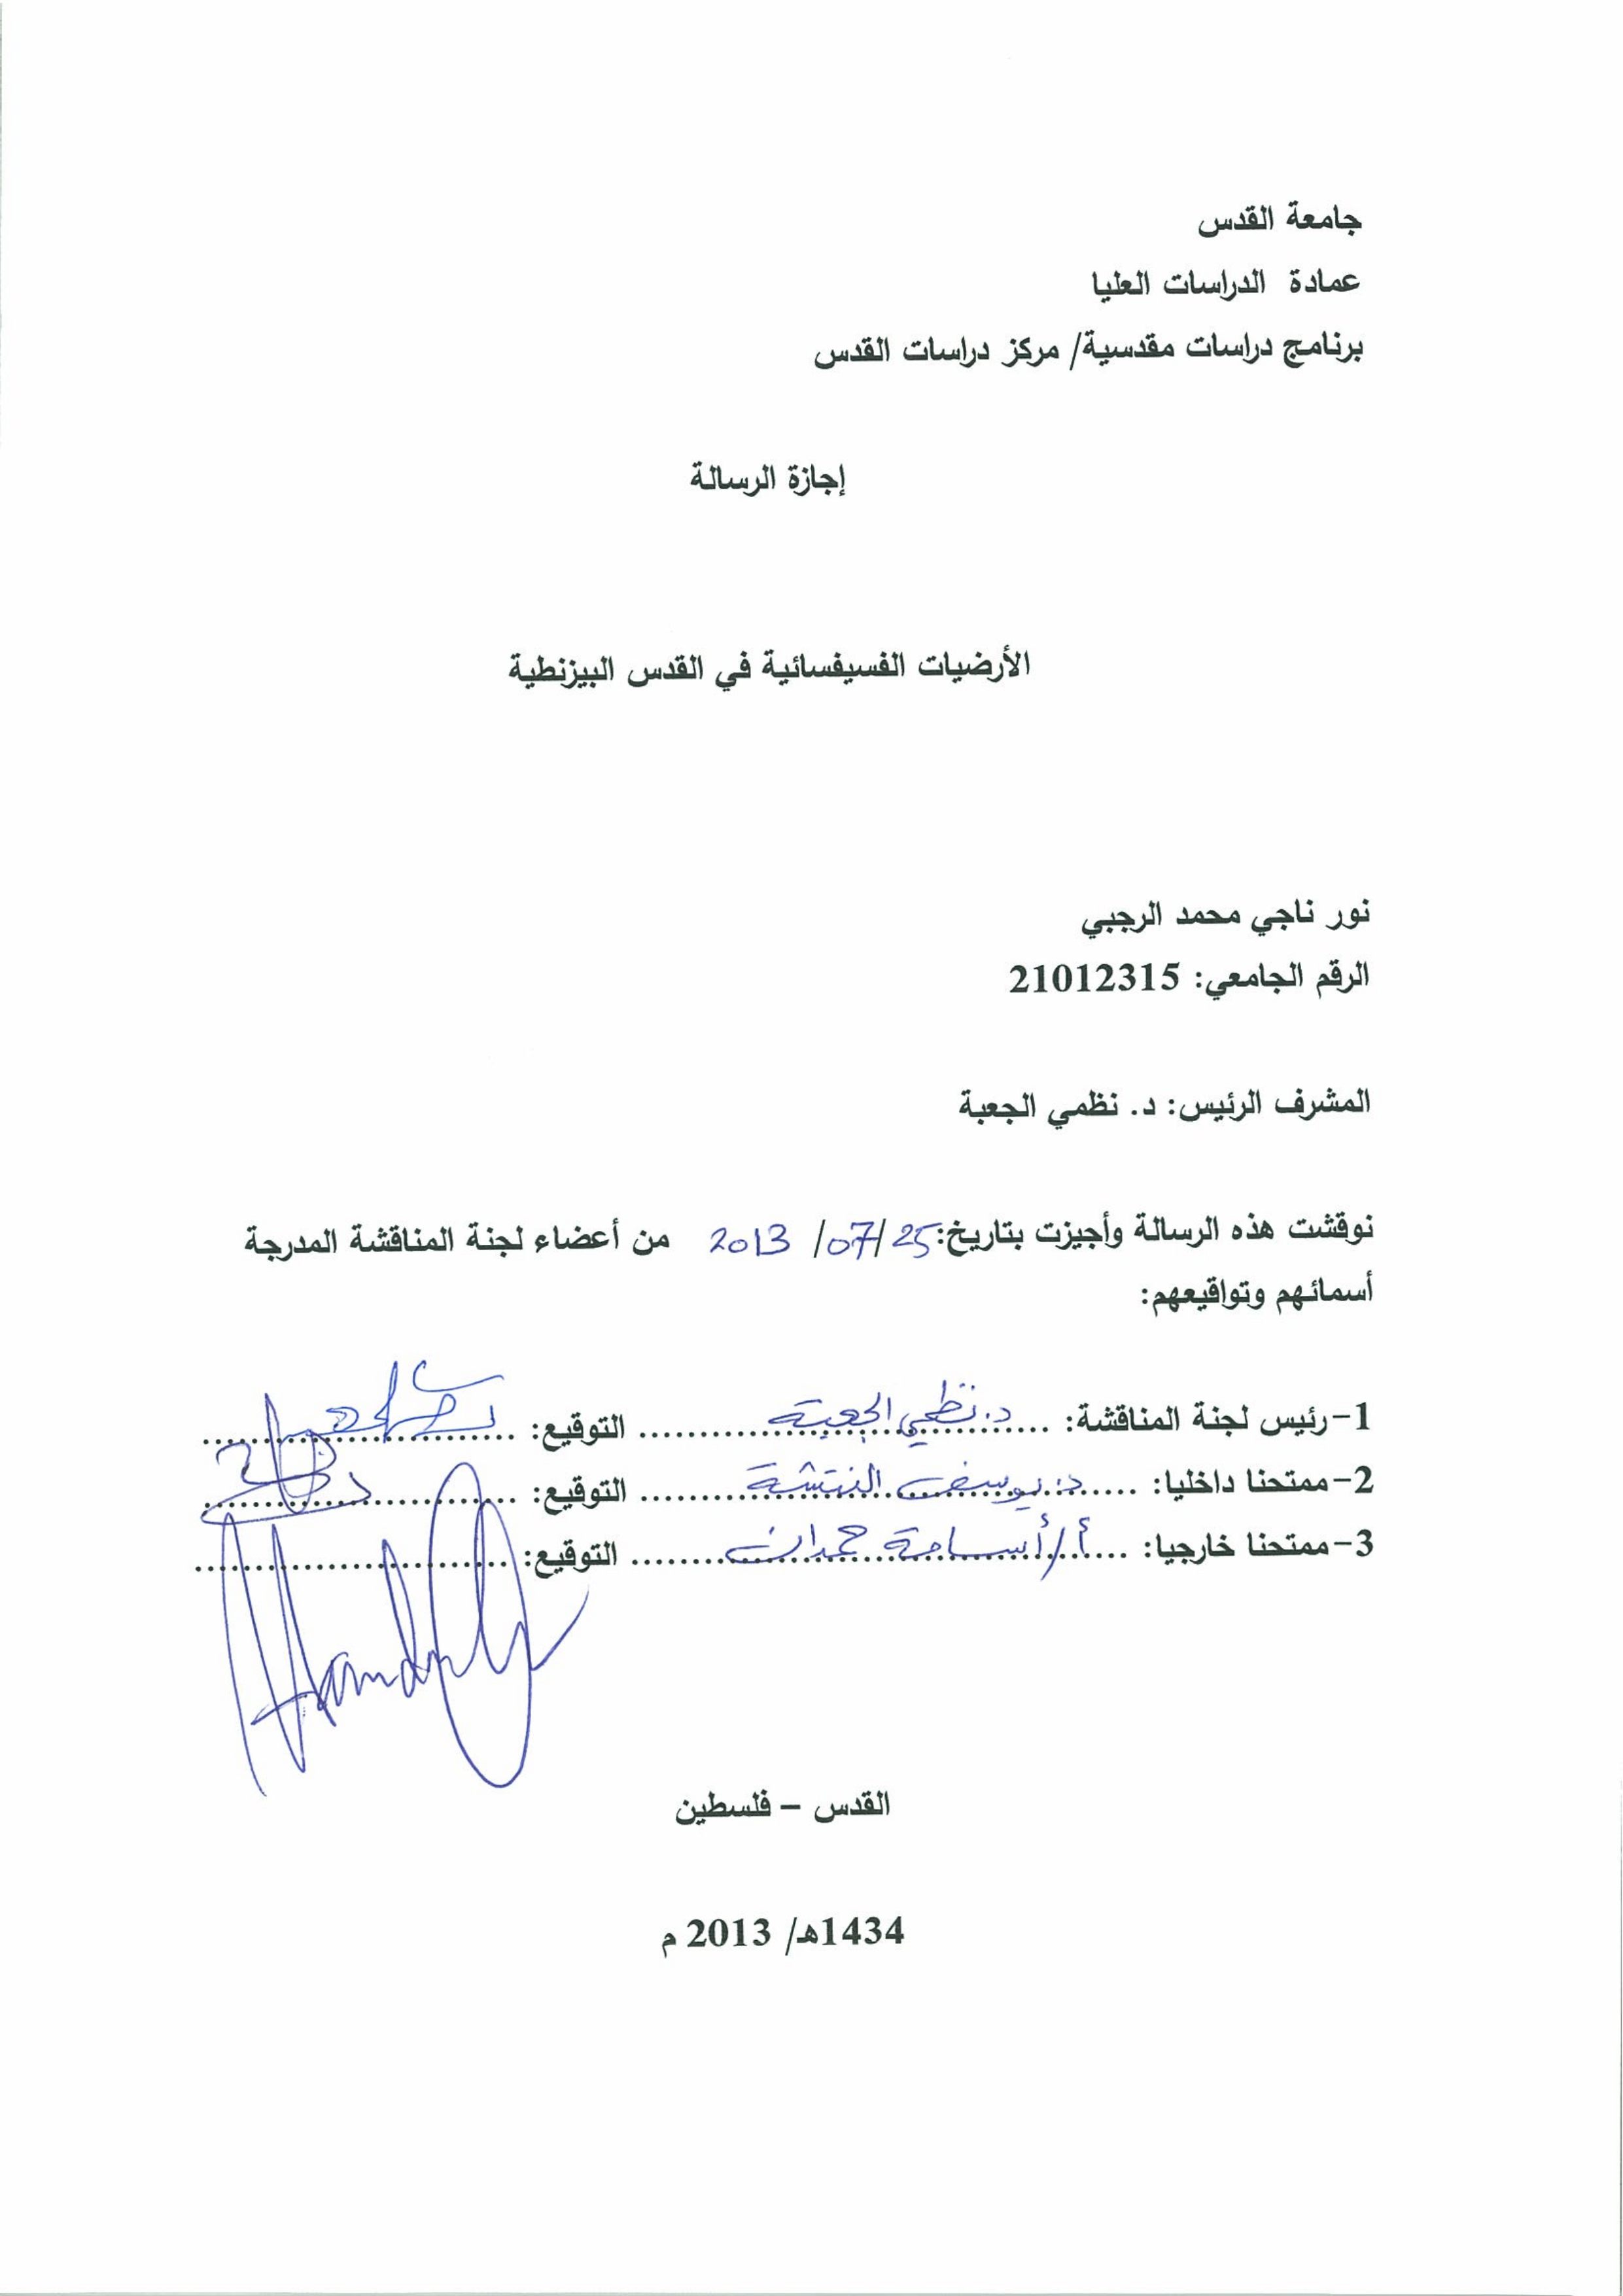 جامعة القدس
عمادة الدراسات العليا
برنامج دراسات مقدسية/ مركز دراسات القدس
إجازة الرسالة
الأرضيات الفسيفسائية في القدس البيزنطية
نور ناجي محمد الرجبي
الرقم الجامعي: 21012315
المشرف الرئيس: د. نظمي الجعبة
نوقشت هذه الرسالة وأجيزت بتاريخ: 25/ 07/ 2013 من أعضاء لجنة المناقشة المدرجة
أسمائهم وتواقيعهم:
1-رئيس لجنة المناقشة: د. نظمي الجعبة التوقيع:
2-ممتحنا داخليا: د. يوسف النتشة التوقيع:
3-ممتحنا خارجيا: أ/ أسامة حمدان التوقيع:
القدس – فلسطين
1434هـ/ 2013 م